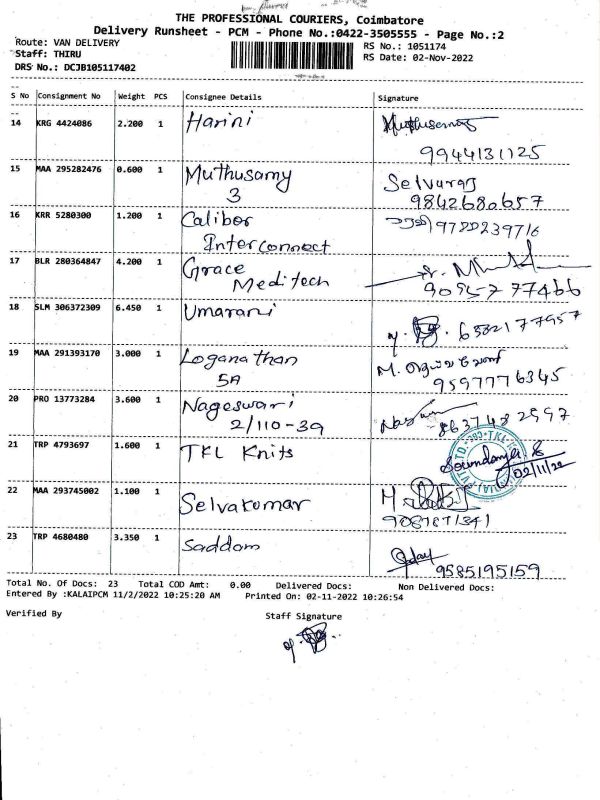 THE PROFESSIONAL COURIERS, Coimbatore
Delivery Runsheet - PCM - Phone No.:0422-3505555 - Page No.:2
Route: VAN DELIVERY
Staff: THIRU
DRS No.: DCJB105117402
RS No.: 1051174
RS Date: 02-Nov-2022
S No Consignment No Weight PCS Consignee Details Signature
14 KRG 4424086 2.200 1 Harini
9944131125
15 MAA 295282476 0.600 1 Muthusamy Selvaraj
3 9842680657
16 KRR 5280300 1.200 1 Calibor 9720239716
Interconnect
17 BLR 280364847 4.200 1 Grace
Meditech 77466
18 SLM 306372309 6.450 1 Umarani
6382177957
19 MAA 291393170 3.000 1 Loganathan
5A 9597776345
20 PRO 13773284 3.600 1 Nageswari
2/110-39
21 TRP 4793697 1.600 1 TKL Knits Soundarya
02/11/22
22 MAA 293745002 1.100 1
Selvakumar
23 TRP 4680480 3.350 1 Saddam
9585195159
Total No. Of Docs: 23 Total COD Amt: 0.00 Delivered Docs: Non Delivered Docs:
Entered By :KALAIPCM 11/2/2022 10:25:20 AM Printed On: 02-11-2022 10:26:54
Verified By Staff Signature